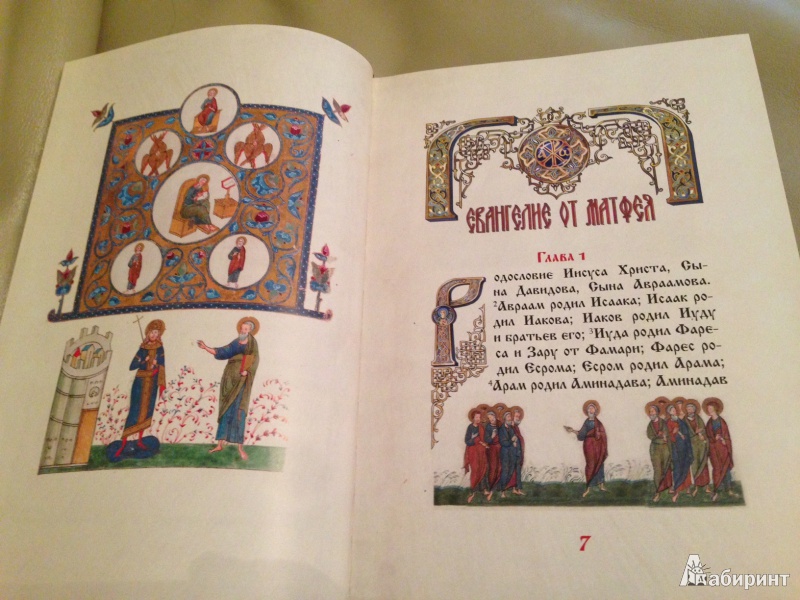 ЕВАНГЕЛИЕ ОТ МАТФЕЯ
Глава 1
Родословие Иисуса Христа, Сы-
на Давидова, Сына Авраамова.
²Авраам родил Исаака; Исаак ро-
дил Иакова; Иаков родил Иуду
и братьев его; ³Иуда родил Фаре-
са и Зару от Фамари; Фарес ро-
дил Есрома; Есром родил Арама;
⁴Арам родил Аминадава; Аминадав
7
Лабиринт